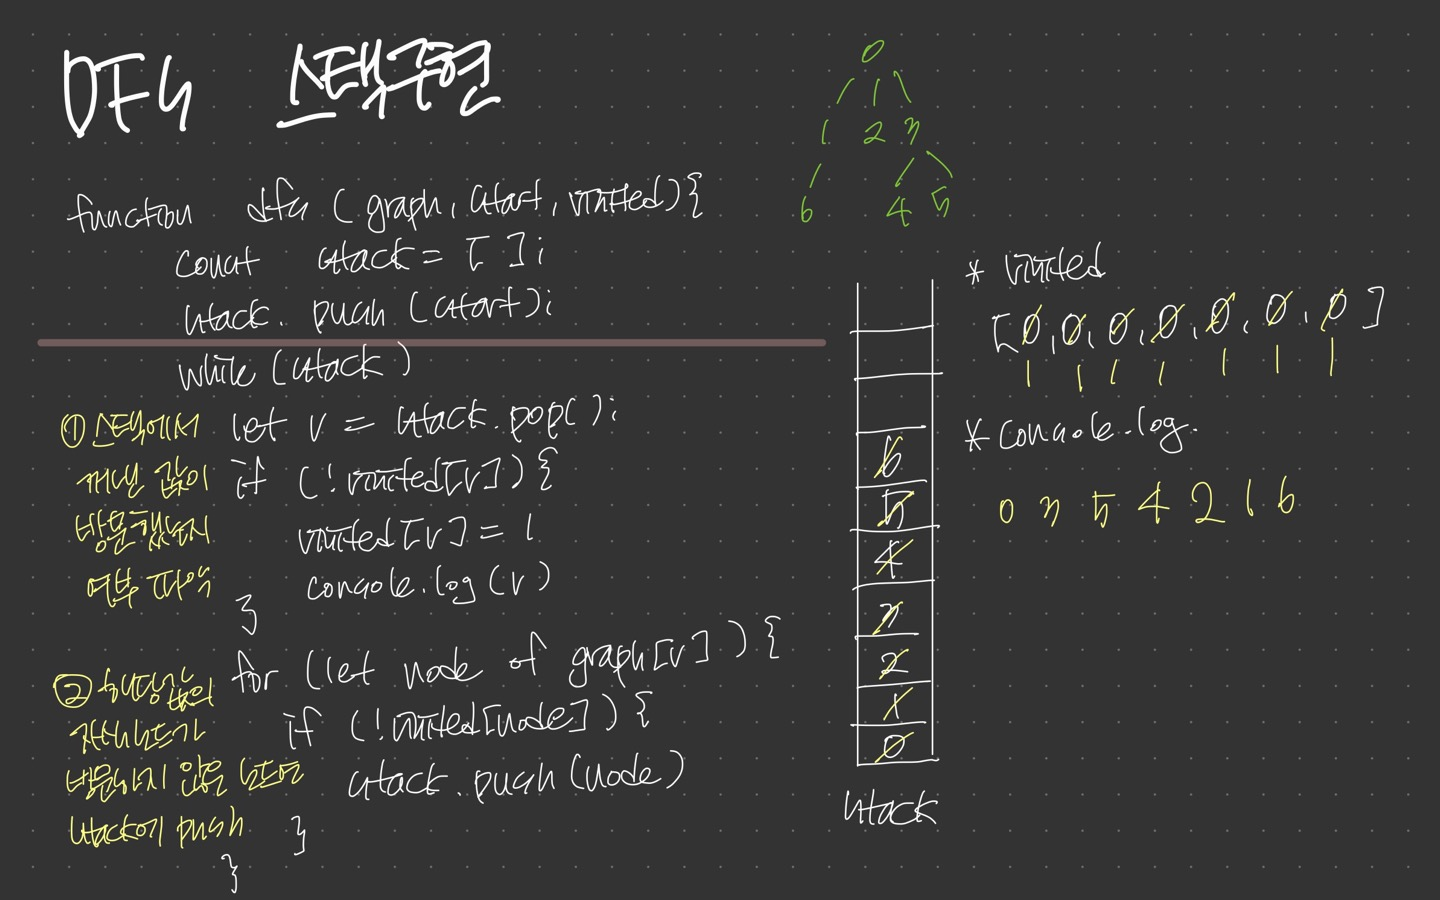 DFS 스택구현
function dfs ( graph, start, visited){
const stack = [ ];
stack. push (start);
while (stack )
let v = stack.pop();
if (!visited[v]){
visited[v] = 1
console.log(v)
}
for (let node of graph[v] ){
if (!visited[node]){
stack.push(node)
}
}
① 스택에서
꺼낸 값이
방문했는지
여부 파악
② 해당값의
자식노드가
방문하지 않은 노드면
stack에 push
0
1 2 3
6 4 5
6
5
4
3
2
1
0
stack
* visited
[0, 0, 0, 0, 0, 0, 0]
1 1 1 1 1 1 1
* console.log.
0 3 5 4 2 1 6